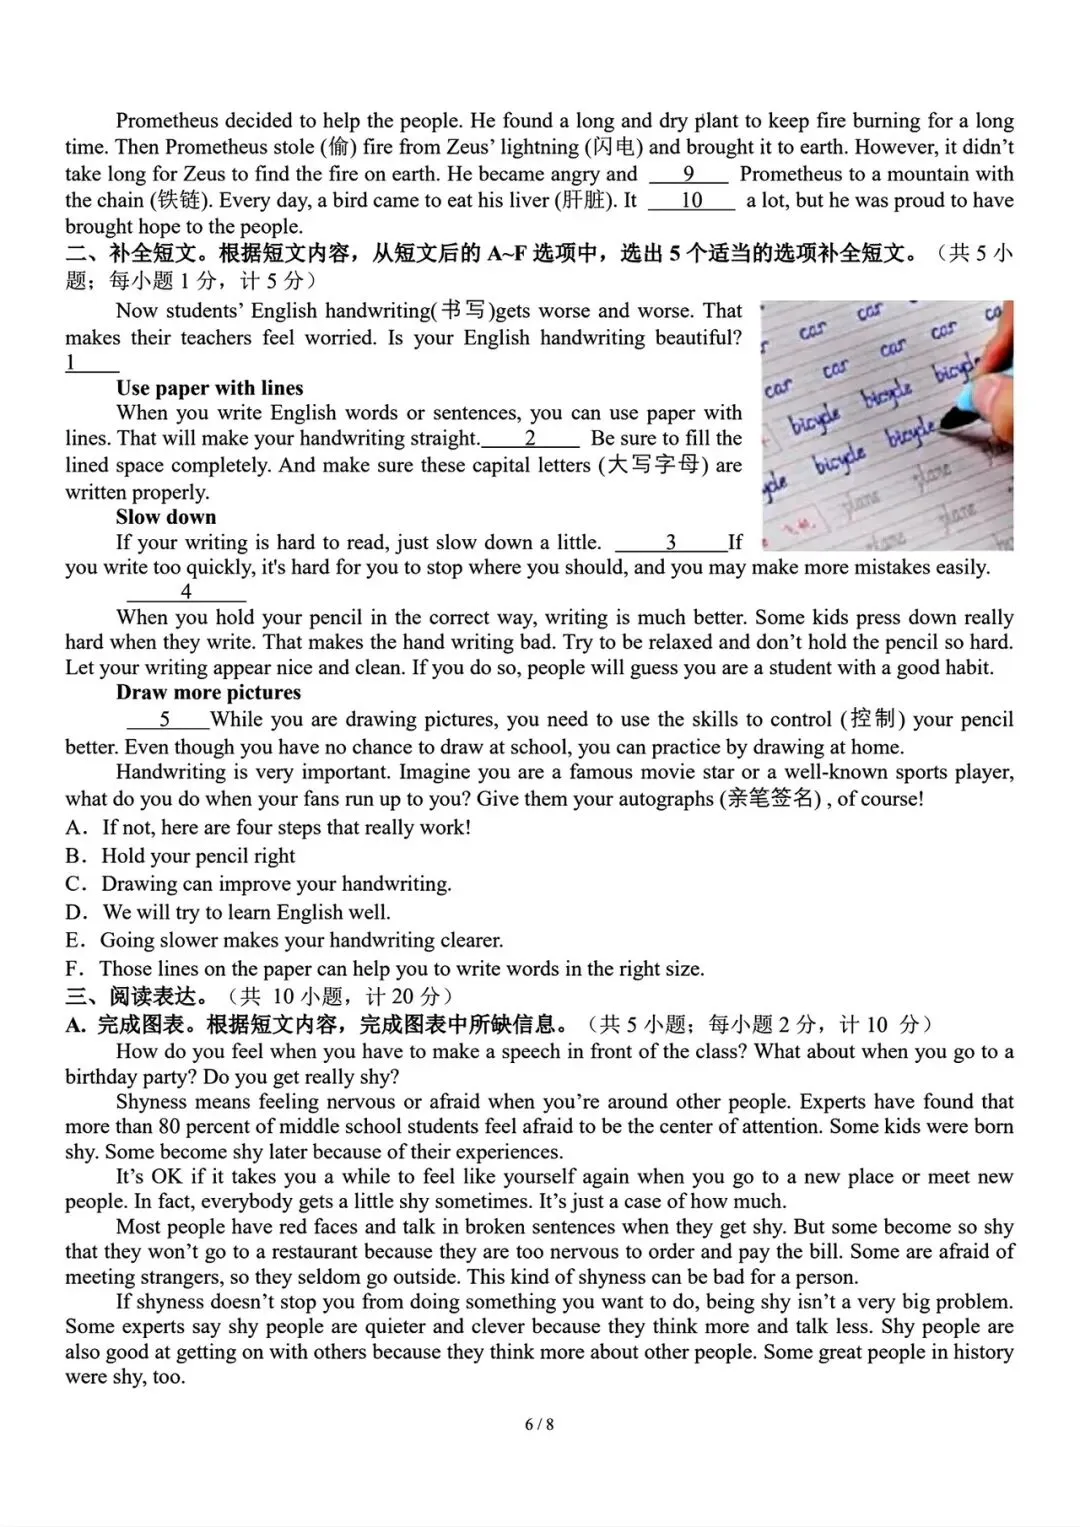 Prometheus decided to help the people. He found a long and dry plant to keep fire burning for a long
time. Then Prometheus stole (偷) fire from Zeus’ lightning (闪电) and brought it to earth. However, it didn’t
take long for Zeus to find the fire on earth. He became angry and ___9___ Prometheus to a mountain with
the chain (铁链). Every day, a bird came to eat his liver (肝脏). It ___10___ a lot, but he was proud to have
brought hope to the people.
二、补全短文。根据短文内容，从短文后的 A~F 选项中，选出 5 个适当的选项补全短文。（共 5 小
题；每小题 1 分，计 5 分）
Now students’ English handwriting(书写)gets worse and worse. That
makes their teachers feel worried. Is your English handwriting beautiful?
1____
Use paper with lines
When you write English words or sentences, you can use paper with
lines. That will make your handwriting straight.____2____ Be sure to fill the
lined space completely. And make sure these capital letters (大写字母) are
written properly.
Slow down
If your writing is hard to read, just slow down a little. ____3____If
you write too quickly, it's hard for you to stop where you should, and you may make more mistakes easily.
____4____
When you hold your pencil in the correct way, writing is much better. Some kids press down really
hard when they write. That makes the hand writing bad. Try to be relaxed and don’t hold the pencil so hard.
Let your writing appear nice and clean. If you do so, people will guess you are a student with a good habit.
Draw more pictures
___5___While you are drawing pictures, you need to use the skills to control (控制) your pencil
better. Even though you have no chance to draw at school, you can practice by drawing at home.
Handwriting is very important. Imagine you are a famous movie star or a well-known sports player,
what do you do when your fans run up to you? Give them your autographs (亲笔签名) , of course!
A．If not, here are four steps that really work!
B．Hold your pencil right
C．Drawing can improve your handwriting.
D．We will try to learn English well.
E．Going slower makes your handwriting clearer.
F．Those lines on the paper can help you to write words in the right size.
三、阅读表达。（共 10 小题，计 20 分）
A. 完成图表。根据短文内容，完成图表中所缺信息。（共 5 小题；每小题 2 分，计 10 分）
How do you feel when you have to make a speech in front of the class? What about when you go to a
birthday party? Do you get really shy?
Shyness means feeling nervous or afraid when you’re around other people. Experts have found that
more than 80 percent of middle school students feel afraid to be the center of attention. Some kids were born
shy. Some become shy later because of their experiences.
It’s OK if it takes you a while to feel like yourself again when you go to a new place or meet new
people. In fact, everybody gets a little shy sometimes. It’s just a case of how much.
Most people have red faces and talk in broken sentences when they get shy. But some become so shy
that they won’t go to a restaurant because they are too nervous to order and pay the bill. Some are afraid of
meeting strangers, so they seldom go outside. This kind of shyness can be bad for a person.
If shyness doesn’t stop you from doing something you want to do, being shy isn’t a very big problem.
Some experts say shy people are quieter and clever because they think more and talk less. Shy people are
also good at getting on with others because they think more about other people. Some great people in history
were shy, too.
6 / 8
car car
car car car
car car
bicycle bicycle bicycle
bicycle bicycle
plane plane
plane plane